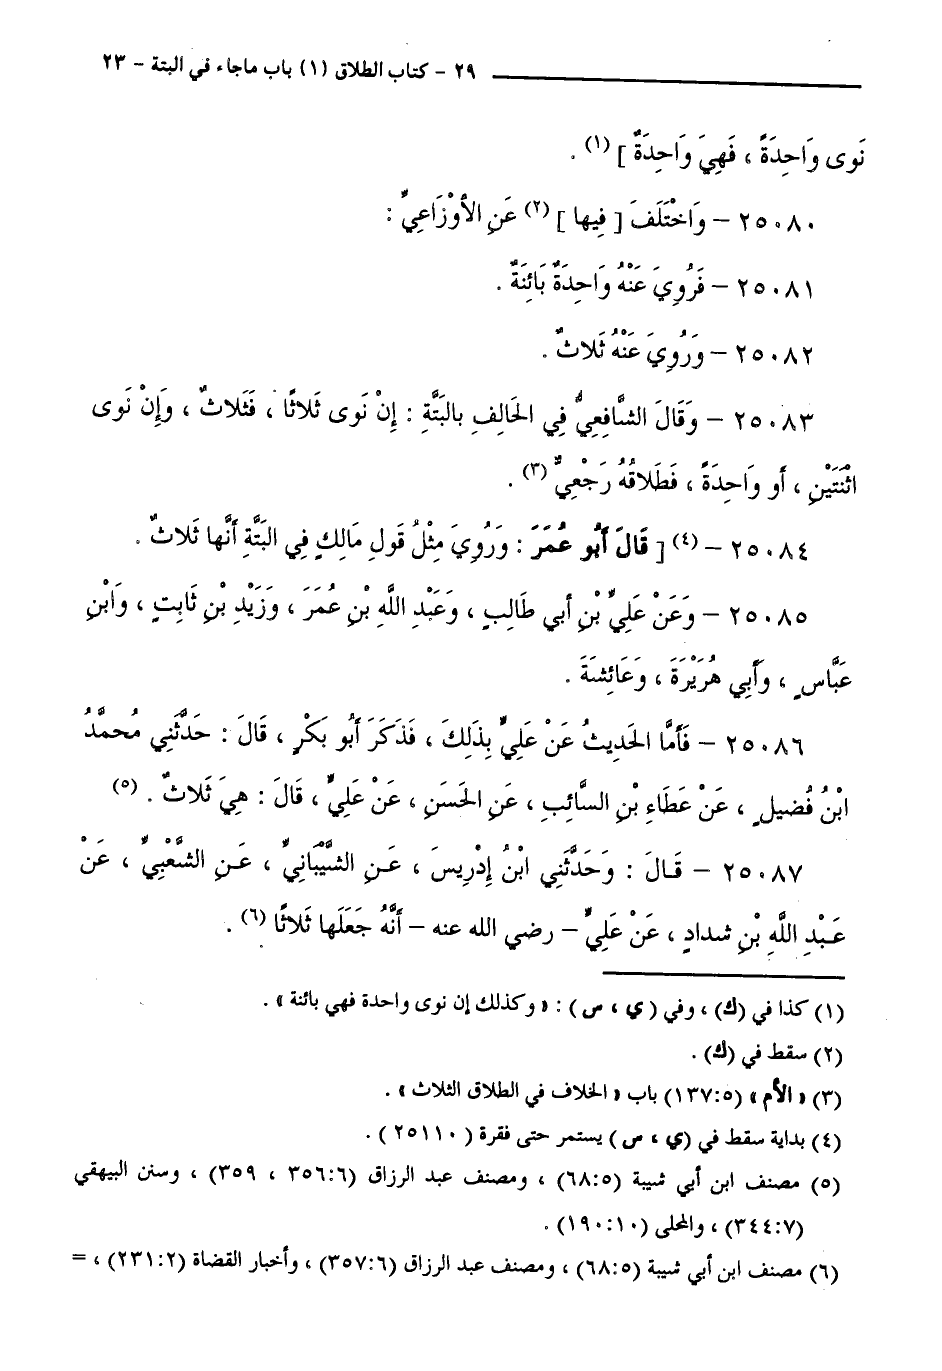 ٢٩ - كتاب الطلاق (١) باب ماجاء في البتة - ٢٣
نَوى وَاحِدَةً ، فَهِيَ وَاحِدَةٌ ] (١) .
٢٥٠٨٠ – وَاخْتَلَفَ [ فِيها ] (٢) عَنِ الأوْزَاعِيِّ :
٢٥٠٨١ – فَرُوِيَ عَنْهُ وَاحِدَةٌ بَائِنَةٌ .
٢٥٠٨٢ – وَرُوِيَ عَنْهُ ثَلاثٌ .
٢٥٠٨٣ – وَقَالَ الشَّافِعِيُّ فِي الحَالِفِ بالبَتَّةِ : إِنْ نَوى ثَلاثًا ، فَثَلاثٌ ، وَإِنْ نَوى
اثْنَتَيْنِ ، أو وَاحِدَةً ، فَطَلاقُهُ رَجْعِيٌّ (٣) .
٢٥٠٨٤ – (٤) [ قَالَ أَبُو عُمَرَ : وَرُوِيَ مِثْلُ قَولِ مَالِكٍ فِي البَتَّةِ أَنَّها ثَلاثٌ .
٢٥٠٨٥ – وَعَنْ عَلِيِّ بْنِ أبي طَالِبٍ ، وَعَبْدِ اللَّهِ بْنِ عُمَرَ ، وَزَيْدِ بْنِ ثَابِتٍ ، وَابْنِ
عَبَّاسٍ ، وَأَبِي هُرَيْرَةَ ، وَعَائِشَةَ .
٢٥٠٨٦ – فَأَمَّا الحَدِيثُ عَنْ عَلِيٍّ بِذَلِكَ ، فَذَكَرَ أَبُو بَكْرٍ ، قَالَ : حَدَّثَنِي مُحمَّدُ
ابْنُ فُضيلٍ ، عَنْ عَطَاءِ بْنِ السَّائِبِ ، عَنِ الحَسَنِ ، عَنْ عَلِيٍّ ، قَالَ : هِيَ ثَلاثٌ . (٥)
٢٥٠٨٧ – قَـالَ : وَحَدَّثَنِي ابْنُ إِدْرِيسَ ، عَـنِ الشَّيْبَانِيِّ ، عَـنِ الشَّعْبِيِّ ، عَنْ
عَـبْدِ اللَّهِ بْنِ شدادٍ ، عَنْ عَلِيٍّ – رضي الله عنه – أَنَّهُ جَعَلَها ثَلاثًا (٦) .
(١) كذا في (ك) ، وفي ( ي ، س ) : « وكذلك إن نوى واحدة فهي بائنة » .
(٢) سقط في (ك) .
(٣) « الأم » (١٣٧:٥) باب « الخلاف في الطلاق الثلاث » .
(٤) بداية سقط في (ي ، س ) يستمر حتى فقرة ( ٢٥١١٠ ) .
(٥) مصنف ابن أبي شيبة (٦٨:٥) ، ومصنف عبد الرزاق (٣٥٦:٦ ، ٣٥٩) ، وسنن البيهقي
(٣٤٤:٧) ، والمحلى (١٩٠:١٠) .
(٦) مصنف ابن أبي شيبة (٦٨:٥) ، ومصنف عبد الرزاق (٣٥٧:٦) ، وأخبار القضاة (٢٣١:٢) ، =